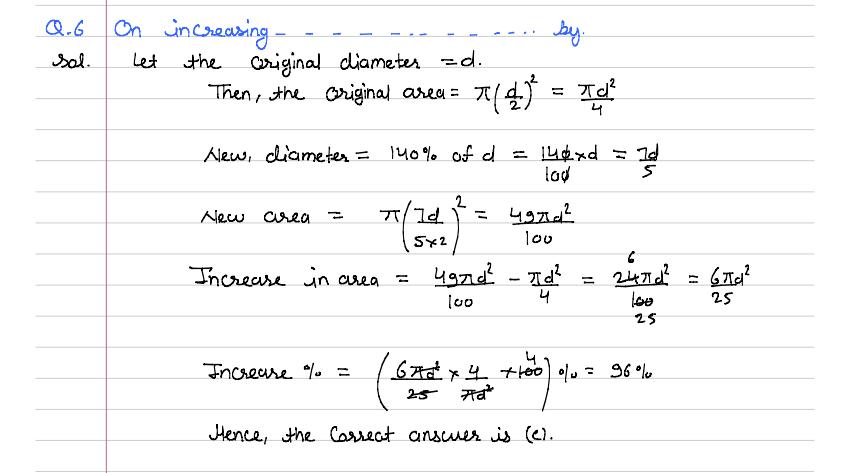 Q.6 On increasing - - - - - - .. - - - .... by.
Sol. Let the original diameter = d.
Then, the original area = π(d/2)² = πd²/4
New, diameter = 140% of d = 140/100 × d = 7d/5
New area = π(7d/5×2)² = 49πd²/100
Increase in area = 49πd²/100 - πd²/4 = 24πd²/100 = 6πd²/25
6
25
Increase % = (6πd²/25 × 4/πd² × 100)% = 96%
4
Hence, the Correct answer is (c).